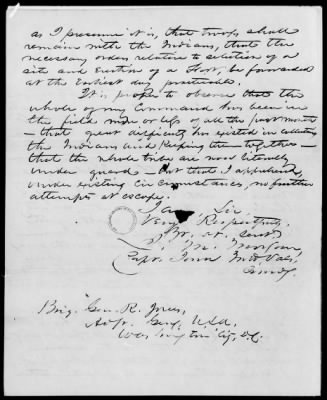 as I presume it is, that troops shall
remain with the Indians, that the
necessary orders relative to selection of a
site and Erection of a Fort, be forwarded
at the Earliest day practicable.
It is proper to observe that the
whole of my Command has been in
the field more or less of all the past month
— that great difficulty has existed in collecting
the Indians and Keeping them together —
that the whole tribe are now literally
under guard — but that I apprehend,
under existing circumstances, no further
attempts at escape.
I am Sir
Very Respectfully
Yr. ob. Servt
Capt. Inf
Comdg.
Brig. Gen R. Jones,
Adjt. Genl. U.S.A.
Washington City, D.C.